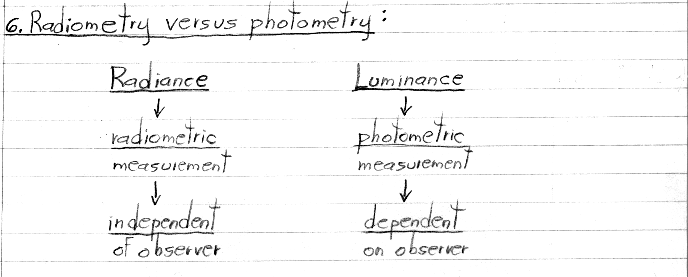 6. Radiometry versus photometry:
Radiance Luminance
↓ ↓
radiometric photometric
measurement measurement
↓ ↓
independent dependent
of observer on observer